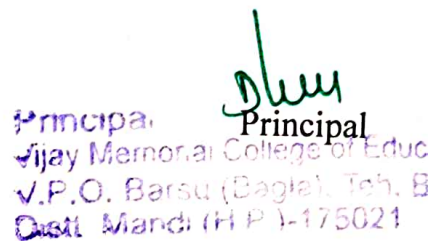 Principal
Principal
Vijay Memorial College of Educ
V.P.O. Barsu (Bagla), Teh. B
Distt. Mandi (H.P.)-175021